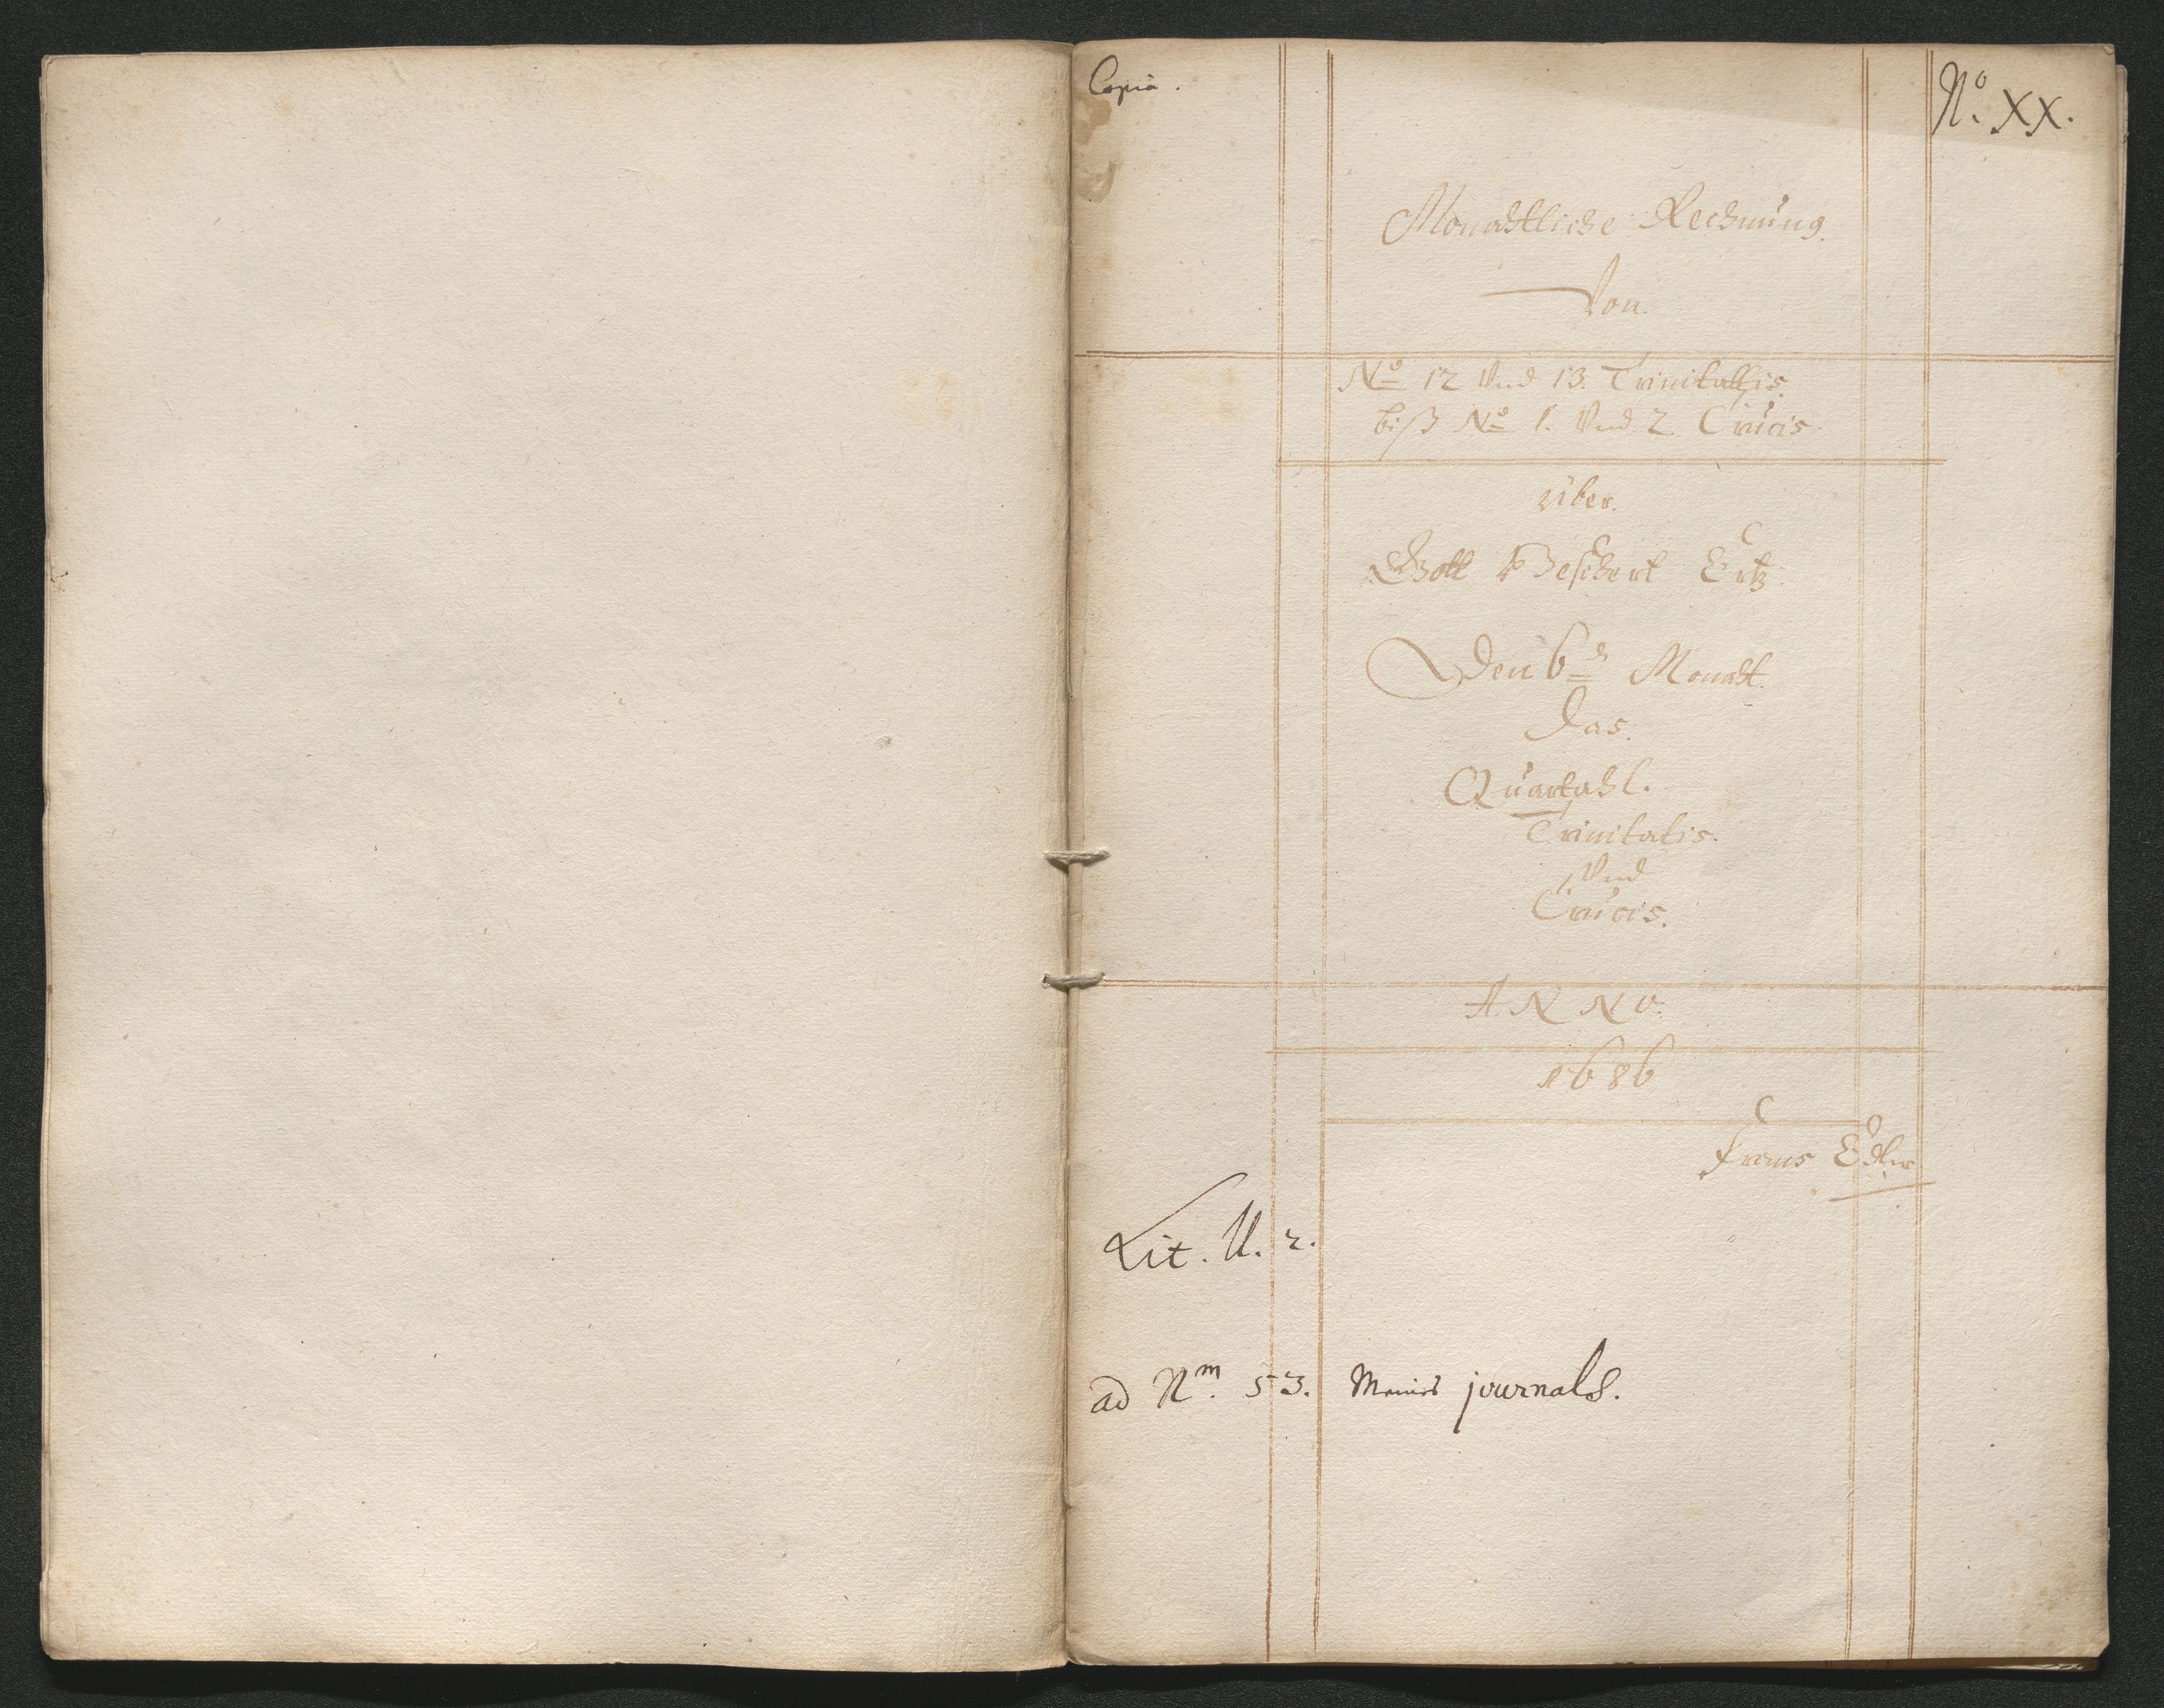 Copia.
No. XX.
Monahtliche Rechnung.
Von.
No 12 Vnd 13. Trinitattis.
biß No 1. Vnd 2 Crucis.
über.
Gott Beschert Ertz.
Den 6 Monaht.
Das.
Quartahl.
Trinitatis.
Vnd
Crucis.
ANNO.
1686
Lit. U. 2.
ad Nm. 53. Meines journals.